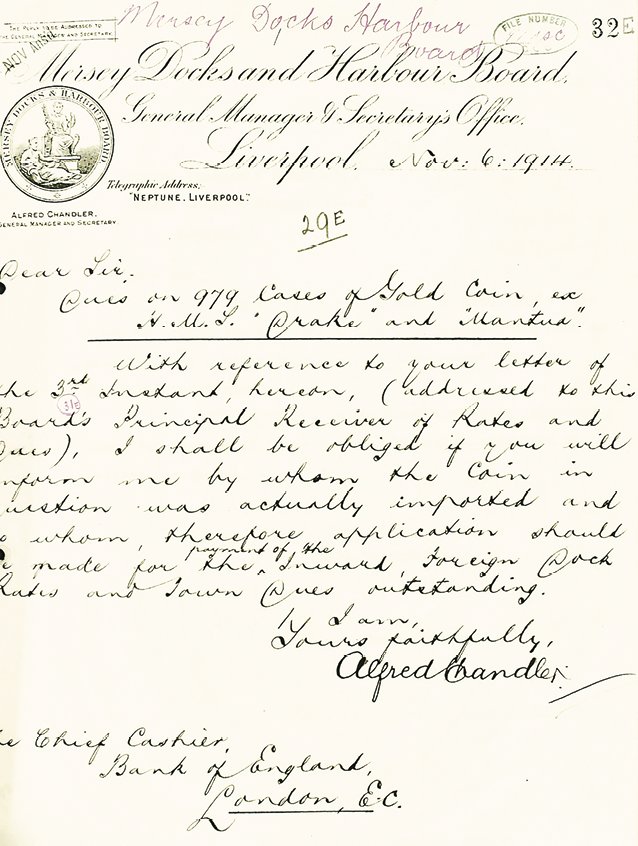 Mersey Docks Harbour
Board
FILE NUMBER
32E
THE REPLY TO BE ADDRESSED TO
THE GENERAL MANAGER AND SECRETARY.
NOV
Mersey Docks and Harbour Board.
General Manager & Secretary's Office,
Liverpool, Nov: 6: 1914.
MERSEY DOCKS & HARBOUR BOARD
Telegraphic Address,
"NEPTUNE. LIVERPOOL".
ALFRED CHANDLER,
GENERAL MANAGER AND SECRETARY.
29E
Dear Sir.
Dues on 979 Cases of Gold Coin, ex
H.M.S. "Drake" and "Mantua".
With reference to your letter of
the 3rd Instant, hereon, (addressed to this
31E
Board's Principal Receiver of Rates and
Dues), I shall be obliged if you will
inform me by whom the Coin in
question was actually imported and
to whom, therefore, application should
be made for payment of the the Inward, Foreign Dock
Rates and Town Dues outstanding.
I am,
Yours faithfully,
Alfred Chandler.
The Chief Cashier,
Bank of England,
London, E.C.